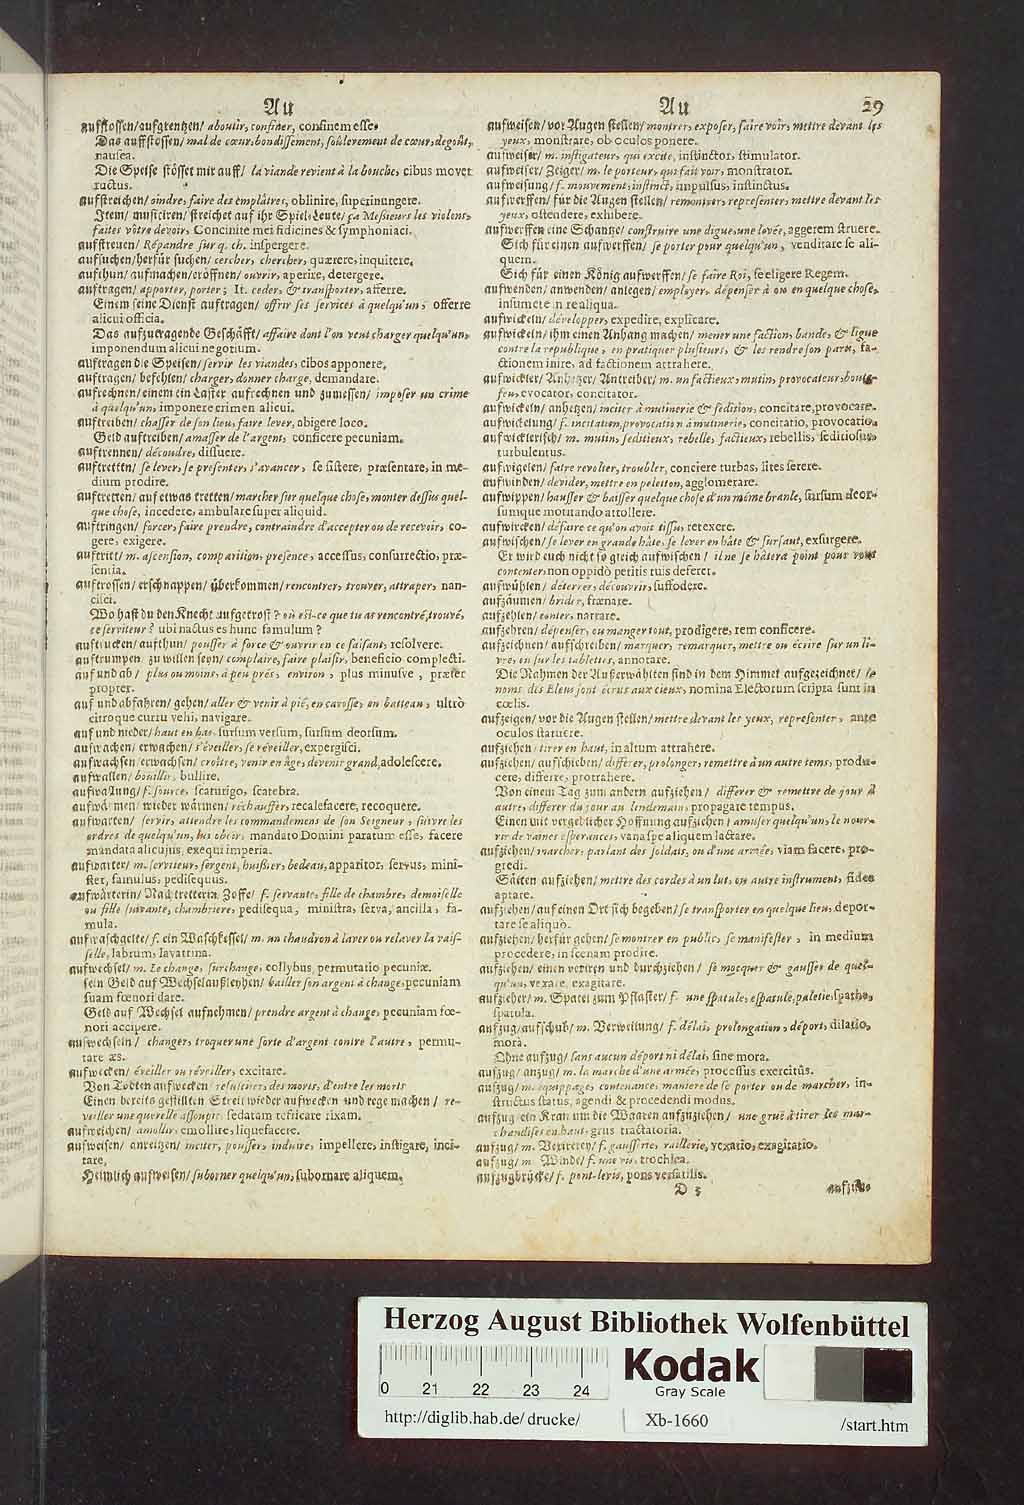 Au
aufstossen/aufgrentzen/ aboutir, confiner, confinem esse.
Das auffstossen/ mal de cœur, bondissement, soûlevement de cœur, degoût,
nausea.
Die Speise stösset mir auff/ la viande revient à la bouche, cibus movet
ructus.
aufstreichen/ oindre, faire des emplâtres, oblinire, superinungere.
Item/ musiciren/ streichet auf ihr Spiel-Leute/ ça Messieurs les violons,
faites vôtre devoir, Concinite mei fidicines & symphoniaci.
aufstreuen/ Répandre sur q. ch. inspergere.
aufsuchen/herfür suchen/ cercher, chercher, quærere, inquirere.
aufthun/ aufmachen/eröffnen/ ouvrir, aperire, detergere.
auftragen/ apporter, porter; It. ceder, & transporter, afferre.
Einem seine Dienst auftragen/ offrir ses services à quelqu'un, offerre
alicui officia.
Das aufzutragende Geschäfft/ affaire dont l'on veut charger quelqu'un,
imponendum alicui negotium.
auftragen die Speisen/ servir les viandes, cibos apponere.
auftragen/ befehlen/ charger, donner charge, demandare.
aufrechnen/ einem ein Laster aufrechnen und zumessen/ imposer un crime
à quelqu'un, imponere crimen alicui.
auftreiben/ chasser de son lieu, faire lever, abigere loco.
Geld auftreiben/ amasser de l'argent, conficere pecuniam.
auftrennen/ découdre, dissuere.
auftretten/ se lever, se presenter, s'avancer, se sistere, præsentare, in me-
dium prodire.
auftretten/ auf etwas tretten/ marcher sur quelque chose, monter dessus quel-
que chose, incedere, ambulare super aliquid.
auftringen/ forcer, faire prendre, contraindre d'accepter ou de recevoir, co-
gere, exigere.
auftritt/ m. ascension, comparition, presence, accessus, consurrectio, præ-
sentia.
auftrossen/ erschnappen/ überkommen/ rencontrer, trouver, attraper, nan-
cisci.
Wo hast du den Knecht aufgetrost? où est-ce que tu as rencontré, trouvé,
ce serviteur? ubi nactus es hunc famulum?
auftrucken/ aufthun/ pousser à force & ouvrir en ce faisant, resolvere.
auftrumpen zu willen seyn/ complaire, faire plaisir, beneficio complecti.
auf und ab/ plus ou moins, à peu prés, environ, plus minusve, præter
propter.
auf und abfahren/ gehen/ aller & venir à pié, en carosse, en batteau, ultrò
citroque curru vehi, navigare.
auf und nieder/ haut en bas, sursum versum, sursum deorsum.
aufwachen/ erwachen/ s'éveiller, se réveiller, expergisci.
aufwachsen/erwachsen/ croître, venir en âge, devenir grand, adolescere.
aufwallen/ bouillir, bullire.
aufwallung/ f. source, scaturigo, scatebra.
aufwärmen/ wieder wärmen/ réchauffer, recalefacere, recoquere.
aufwarten/ servir, attendre les commandemens de son Seigneur, suivre les
ordres de quelqu'un, lui obeir, mandato Domini paratum esse, facere
mandata alicujus, exequi imperia.
aufwarter/ m. serviteur, sergent, huissier, bedeau, apparitor, servus, mini-
ster, famulus, pedisequus.
aufwärterin/ Nachtretterin/ Zoffe/ f. servante, fille de chambre, demoiselle
ou fille suivante, chambriere, pedisequa, ministra, serva, ancilla, fa-
mula.
aufwaschgelte/ f. ein Waschkessel/ m. un chaudron à laver ou relaver la vais-
selle, labrum, lavatrina.
aufwechsel/ m. Le change, surchange, collybus, permutatio pecuniæ.
sein Geld auf Wechsel außleyhen/ bailler son argent à change, pecuniam
suam fœnori dare.
Geld auf Wechsel aufnehmen/ prendre argent à change, pecuniam fœ-
nori accipere.
aufwechseln/ changer, troquer une sorte d'argent contre l'autre, permu-
tare æs.
aufwecken/ éveiller ou réveiller, excitare.
Von Todten aufwecken/ resusciter, des morts, d'entre les morts
Einen bereits gestillten Streit wieder aufwecken und rege machen/ re-
veiller une querelle assoupie, sedatam refricare rixam.
aufweichen/ amollir, emollire, liquefacere.
aufweisen/ anreitzen/ inciter, pousser, induire, impellere, instigare, inci-
tare,
Heimlich aufweisen/ suborner quelqu'un, subornare aliquem.
Au 29
aufweisen/ vor Augen stellen/ montrer, exposer, faire voir, mettre devant les
yeux, monstrare, ob oculos ponere.
aufweiser/ m. instigateur, qui excite, instinctor, stimulator.
aufweiser/ Zeiger/ m. le porteur, qui fait voir, monstrator.
aufweisung/ f. mouvement, instinct, impulsus, instinctus.
aufwerffen/ für die Augen stellen/ remontrer, representer, mettre devant les
yeux, ostendere, exhibere.
aufwerffen eine Schantze/ construire une digue, une levée, aggerem struere.
Sich für einen aufwerffen/ se porter pour quelqu'un, venditare se ali-
quem.
Sich für einen König aufwerffen/ se faire Roi, se eligere Regem.
aufwenden/ anwenden/ anlegen/ employer, dépenser à ou en quelque chose,
insumete in re aliqua.
aufwickeln/ développer, expedire, explicare.
aufwickeln/ ihm einen Anhang machen/ mener une faction, bande, & ligue
contre la republique, en pratiquer plusieurs, & les rendre son parti, fa-
ctionem inire, ad factionem attrahere.
aufwickler/ Anhetzer/ Antreiber/ m. un factieux, mutin, provocateur, boute-
feu, evocator, concitator.
aufwickeln/ anhetzen/ inciter à mutinerie & sedition, concitare, provocare.
aufwickelung/ f. incitation, provocation à mutinerie, concitatio, provocatio.
aufwicklerisch/ m. mutin, seditieux, rebelle, factieux, rebellis, seditiosus,
turbulentus.
aufwigelen/ faire revolter, troubler, conciere turbas, lites serere.
aufwinden/ devider, mettre en peloton, agglomerare.
aufwippen/ hausser & baisser quelque chose d'un même branle, sursum deor-
sumque motitando attollere.
aufwircken/ défaire ce qu'on avoit tissu, retexere.
aufwischen/ se lever en grande hâte, se lever en hâte & sursaut, exsurgere.
Er wird euch nicht so gleich aufwischen/ il ne se hâtera point pour vous
contenter, non oppidò petitis tuis deferet.
aufwühlen/ déterrer, découvrir, suffodere.
aufzäumen/ brider, frœnare.
aufzehlen/ conter, narrare.
aufzehren/ dépenser, ou manger tout, prodigere, rem conficere.
aufzeichnen/ aufschreiben/ marquer, remarquer, mettre ou écrire sur un li-
vre, en sur les tablettes, annotare.
Die Nahmen der Außerwählten sind in dem Himmel aufgezeichnet/ le
noms des Eleus sont écrus aux cieux, nomina Electorum scripta sunt in
cœlis.
aufzeigen/ vor die Augen stellen/ mettre devant les yeux, representer, ante
oculos statuere.
aufziehen/ tirer en haut, in altum attrahere.
aufziehen/ aufschieben/ différer, prolonger, remettre à un autre tems, produ-
cere, differre, protrahere.
Von einem Tag zum andern aufziehen/ differer & remettre de jour à
autre, differer du jour au lendemain, propagare tempus.
Einen mit vergeblicher Hoffnung aufziehen/ amuser quelqu'un, le nour-
rir de vaines esperances, vana spe aliquem lactare.
aufziehen/ marcher, parlant des soldats, ou d'une armée, viam facere, pro-
gredi.
Säiten aufziehen/ mettre des cordes à un lut, ou autre instrument, fides
aptare.
aufziehen/ auf einen Ort sich begeben/ se transporter en quelque lieu, depor-
tare se aliquò.
aufziehen/ herfür gehen/ se montrer en public, se manifester, in medium
procedere, in scenam prodire.
aufziehen/ einen vexiren und durchziehen/ se mocquer & gausser de quel-
qu'un, vexare, exagitare.
aufzieher/ m. Spatel zum Pflaster/ f. une spatule, espatule, paletie, spatha,
spatula.
aufzug/ aufschub/ m. Verweilung/ f. délai, prolongation, déport, dilatio,
mora.
Ohne aufzug/ sans aucun déport ni délai, sine mora.
aufzug/ anzug/ m. la marche d'une armée, processus exercitûs.
aufzug/ m. equippage, contenance, maniere de se porter ou de marcher, in-
structus status, agendi & procedendi modus.
aufzug ein Kran um die Waaren aufzuziehen/ une gruë à tirer les mar-
chandises en haut, grus tractatoria.
aufzug/ m. Vexirerey/ f. gausserie, raillerie, vexatio, exagitatio.
aufzug/ m. Winde/ f. une vis, trochlea.
aufzugbrücke/ f. pont-levis, pons versatilis.
D 5
Herzog August Bibliothek Wolfenbüttel
0 21 22 23 24
Kodak
Gray Scale
http://diglib.hab.de/drucke/ Xb-1660 /start.htm